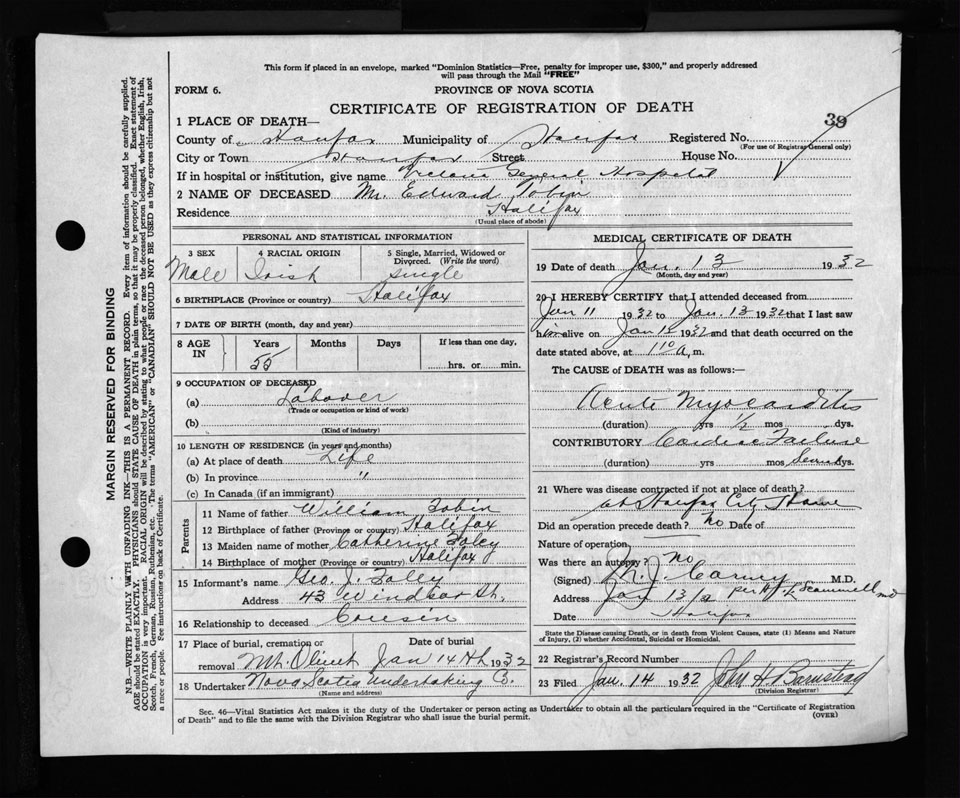 This form if placed in an envelope, marked "Dominion Statistics—Free, penalty for improper use, $300," and properly addressed
will pass through the Mail "FREE"
FORM 6.
PROVINCE OF NOVA SCOTIA
CERTIFICATE OF REGISTRATION OF DEATH
39
1 PLACE OF DEATH—
County of Halifax Municipality of Halifax Registered No.
(For use of Registrar General only)
City or Town Halifax Street House No.
If in hospital or institution, give name Victoria General Hospital
2 NAME OF DECEASED Mr. Edward Tobin
Residence Halifax
(Usual place of abode)
PERSONAL AND STATISTICAL INFORMATION
3 SEX 4 RACIAL ORIGIN 5 Single, Married, Widowed or Divorced. (Write the word)
Male Irish single
6 BIRTHPLACE (Province or country) Halifax
7 DATE OF BIRTH (month, day and year)
8 AGE IN Years Months Days If less than one day,
55 hrs. or min.
9 OCCUPATION OF DECEASED
(a) Labourer
(Trade or occupation or kind of work)
(b)
(Kind of industry)
10 LENGTH OF RESIDENCE (in years and months)
(a) At place of death Life
(b) In province "
(c) In Canada (if an immigrant)
Parents
11 Name of father William Tobin
12 Birthplace of father (Province or country) Halifax
13 Maiden name of mother Catherine Foley
14 Birthplace of mother (Province or country) Halifax
15 Informant's name Geo. J. Foley
Address 43 Windsor St.
16 Relationship to deceased Cousin
17 Place of burial, cremation or removal Date of burial
Mt. Olivet Jan 14th 1932
18 Undertaker Nova Scotia Undertaking Co.
(Name and address)
MEDICAL CERTIFICATE OF DEATH
19 Date of death Jan. 13 1932
(Month, day and year)
20 I HEREBY CERTIFY that I attended deceased from
Jan 11 1932 to Jan. 13 1932 that I last saw
him alive on Jan 1932 and that death occurred on
date stated above, at a, m.
The CAUSE of DEATH was as follows:—
Acute Myocarditis
(duration) yrs ½ mos dys.
CONTRIBUTORY Cardiac Failure
(duration) yrs mos dys.
21 Where was disease contracted if not at place of death?
at Halifax City Home
Did an operation precede death? no Date of
Nature of operation
Was there an autopsy? no
(Signed) J. M.D.
Address Jan 13/32 per
Date Halifax
State the Disease causing Death, or in death from Violent Causes, state (1) Means and
Nature of Injury, (2) whether Accidental, Suicidal or Homicidal.
22 Registrar's Record Number
23 Filed Jan. 14 1932 John H Barnstead
(Division Registrar)
Sec. 46—Vital Statistics Act makes it the duty of the Undertaker or person acting as Undertaker to obtain all the particulars required in the "Certificate of Registration
of Death" and to file the same with the Division Registrar who shall issue the burial permit.
(OVER)
MARGIN RESERVED FOR BINDING
N.B.—WRITE PLAINLY WITH UNFADING INK—THIS IS A PERMANENT RECORD. Every item of information should be carefully supplied.
AGE should be stated EXACTLY. PHYSICIANS should STATE CAUSE OF DEATH in plain terms, so that it may be properly classified. Exact statement of
OCCUPATION is very important. RACIAL ORIGIN will be described by stating to what people or race the deceased person belonged, whether English, Irish,
Scotch, French, German, Russian, Ruthenian, etc. The terms "AMERICAN" or "CANADIAN" SHOULD NOT BE USED as they express citizenship but not
a race or people. See instructions on back of Certificate.